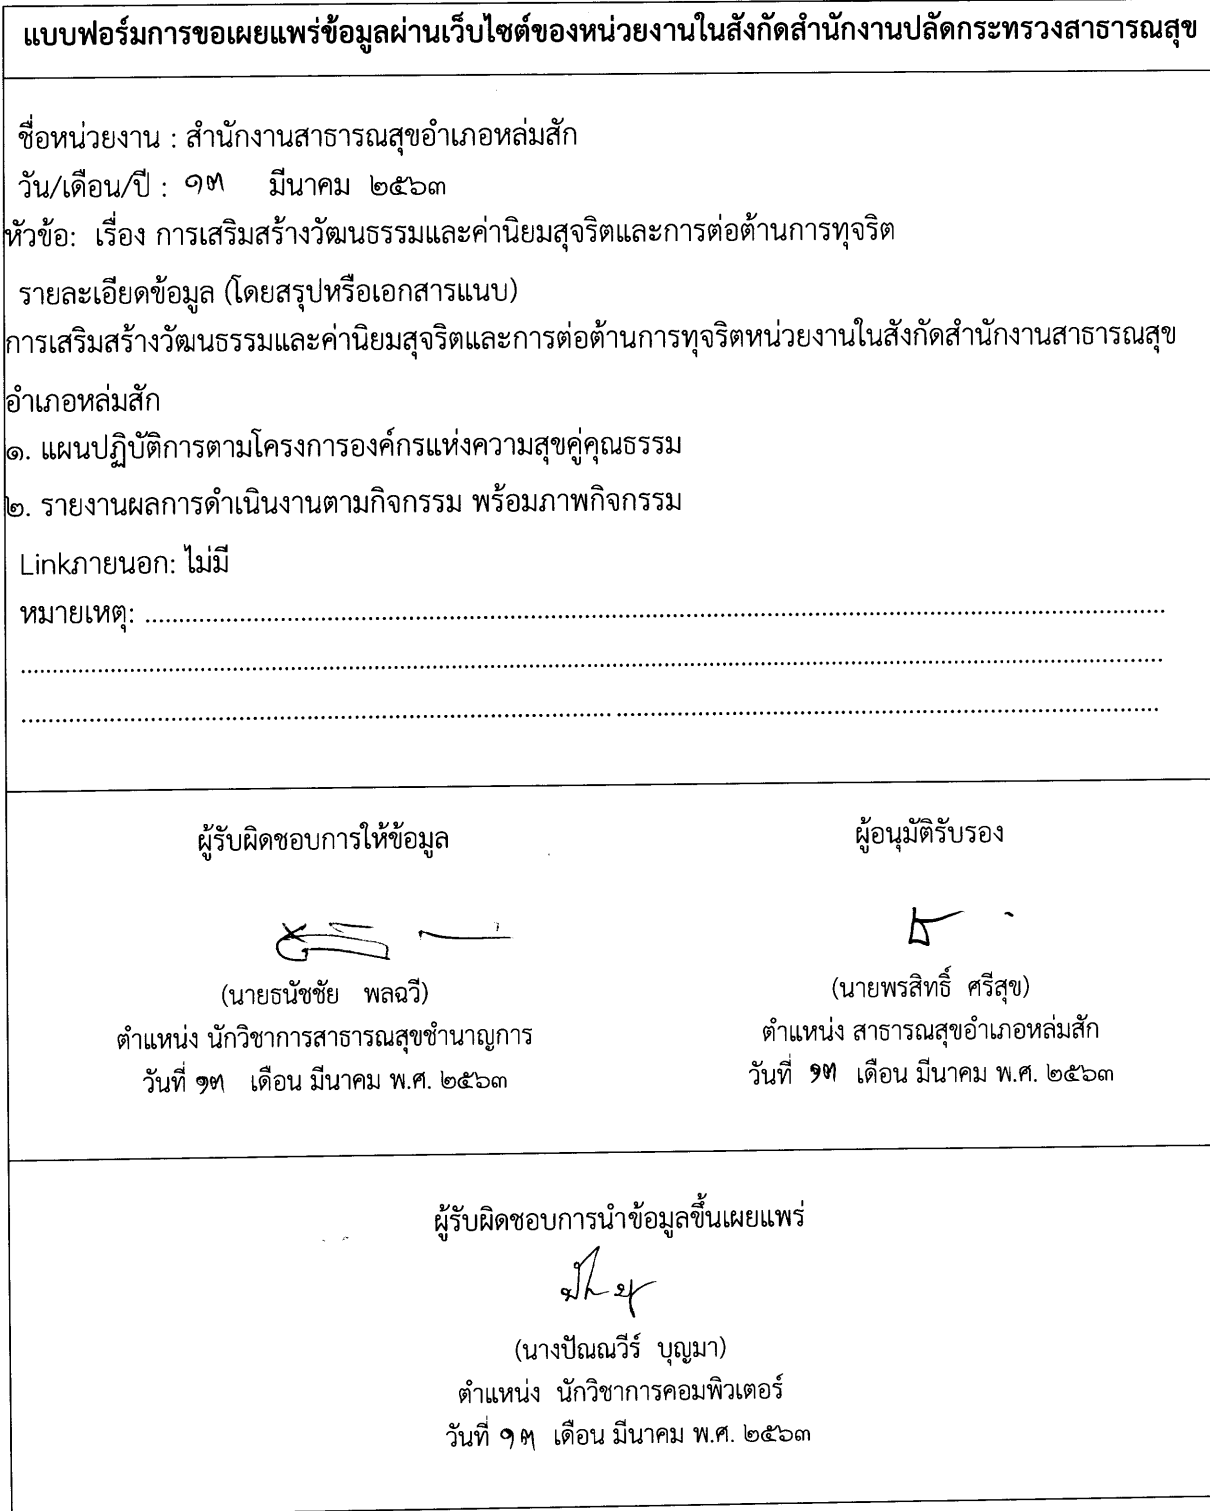 แบบฟอร์มการขอเผยแพร่ข้อมูลผ่านเว็บไซต์ของหน่วยงานในสังกัดสำนักงานปลัดกระทรวงสาธารณสุข
ชื่อหน่วยงาน : สำนักงานสาธารณสุขอำเภอหล่มสัก
วัน/เดือน/ปี : ๑๓ มีนาคม ๒๕๖๓
หัวข้อ: เรื่อง การเสริมสร้างวัฒนธรรมและค่านิยมสุจริตและการต่อต้านการทุจริต
รายละเอียดข้อมูล (โดยสรุปหรือเอกสารแนบ)
การเสริมสร้างวัฒนธรรมและค่านิยมสุจริตและการต่อต้านการทุจริตหน่วยงานในสังกัดสำนักงานสาธารณสุข
อำเภอหล่มสัก
๑. แผนปฏิบัติการตามโครงการองค์กรแห่งความสุขคู่คุณธรรม
๒. รายงานผลการดำเนินงานตามกิจกรรม พร้อมภาพกิจกรรม
Linkภายนอก: ไม่มี
หมายเหตุ: ..........................................................................................
..........................................................................................
..........................................................................................
ผู้รับผิดชอบการให้ข้อมูล
(นายธนัชชัย พลฉวี)
ตำแหน่ง นักวิชาการสาธารณสุขชำนาญการ
วันที่ ๑๓ เดือน มีนาคม พ.ศ. ๒๕๖๓
ผู้อนุมัติรับรอง
(นายพรสิทธิ์ ศรีสุข)
ตำแหน่ง สาธารณสุขอำเภอหล่มสัก
วันที่ ๑๓ เดือน มีนาคม พ.ศ. ๒๕๖๓
ผู้รับผิดชอบการนำข้อมูลขึ้นเผยแพร่
(นางปัณณวีร์ บุญมา)
ตำแหน่ง นักวิชาการคอมพิวเตอร์
วันที่ ๑๓ เดือน มีนาคม พ.ศ. ๒๕๖๓